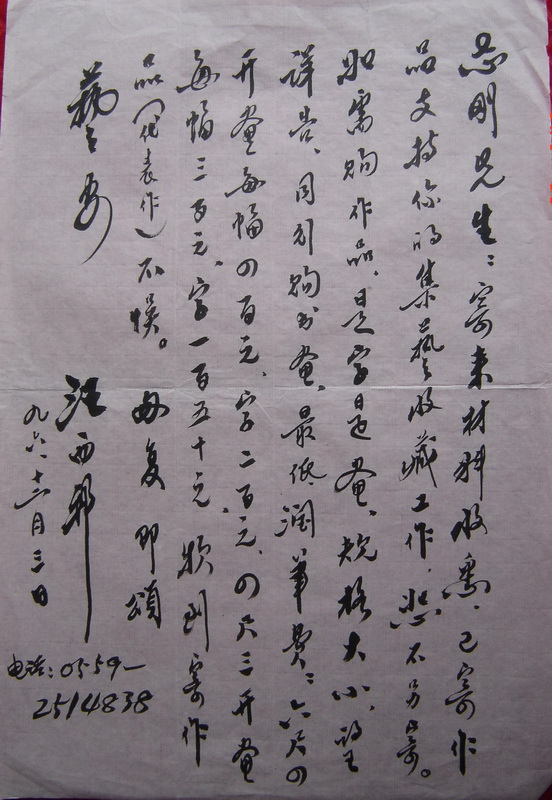 志刚先生：寄来材料收悉，已寄作
品支持你的集藝收藏工作，恕不另寄。
如需购作品，是字是画，规格大小，望
详告，购书画，最低润笔费：六尺四
开画每幅四百元、字二百元、四尺三开画
每幅三百元，字一百五十元，款到寄作
品（代表作）不误。 匆复 即颂
藝安
汪西邦
九六、十二月三日
电话：0559—
2514838